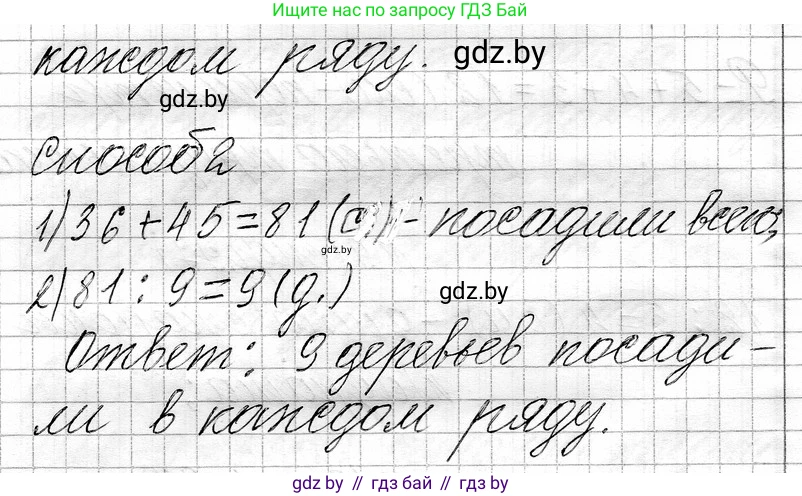 Ищите нас по запросу ГДЗ Бай
каждом ряду. gdz.by
gdz.by
Способ 2
1) 36 + 45 = 81 (с.) - посадили всего;
gdz.by
2) 81 : 9 = 9 (д.)
gdz.by
Ответ: 9 деревьев посади-
ли в каждом ряду.
gdz.by // гдз бай // gdz.by